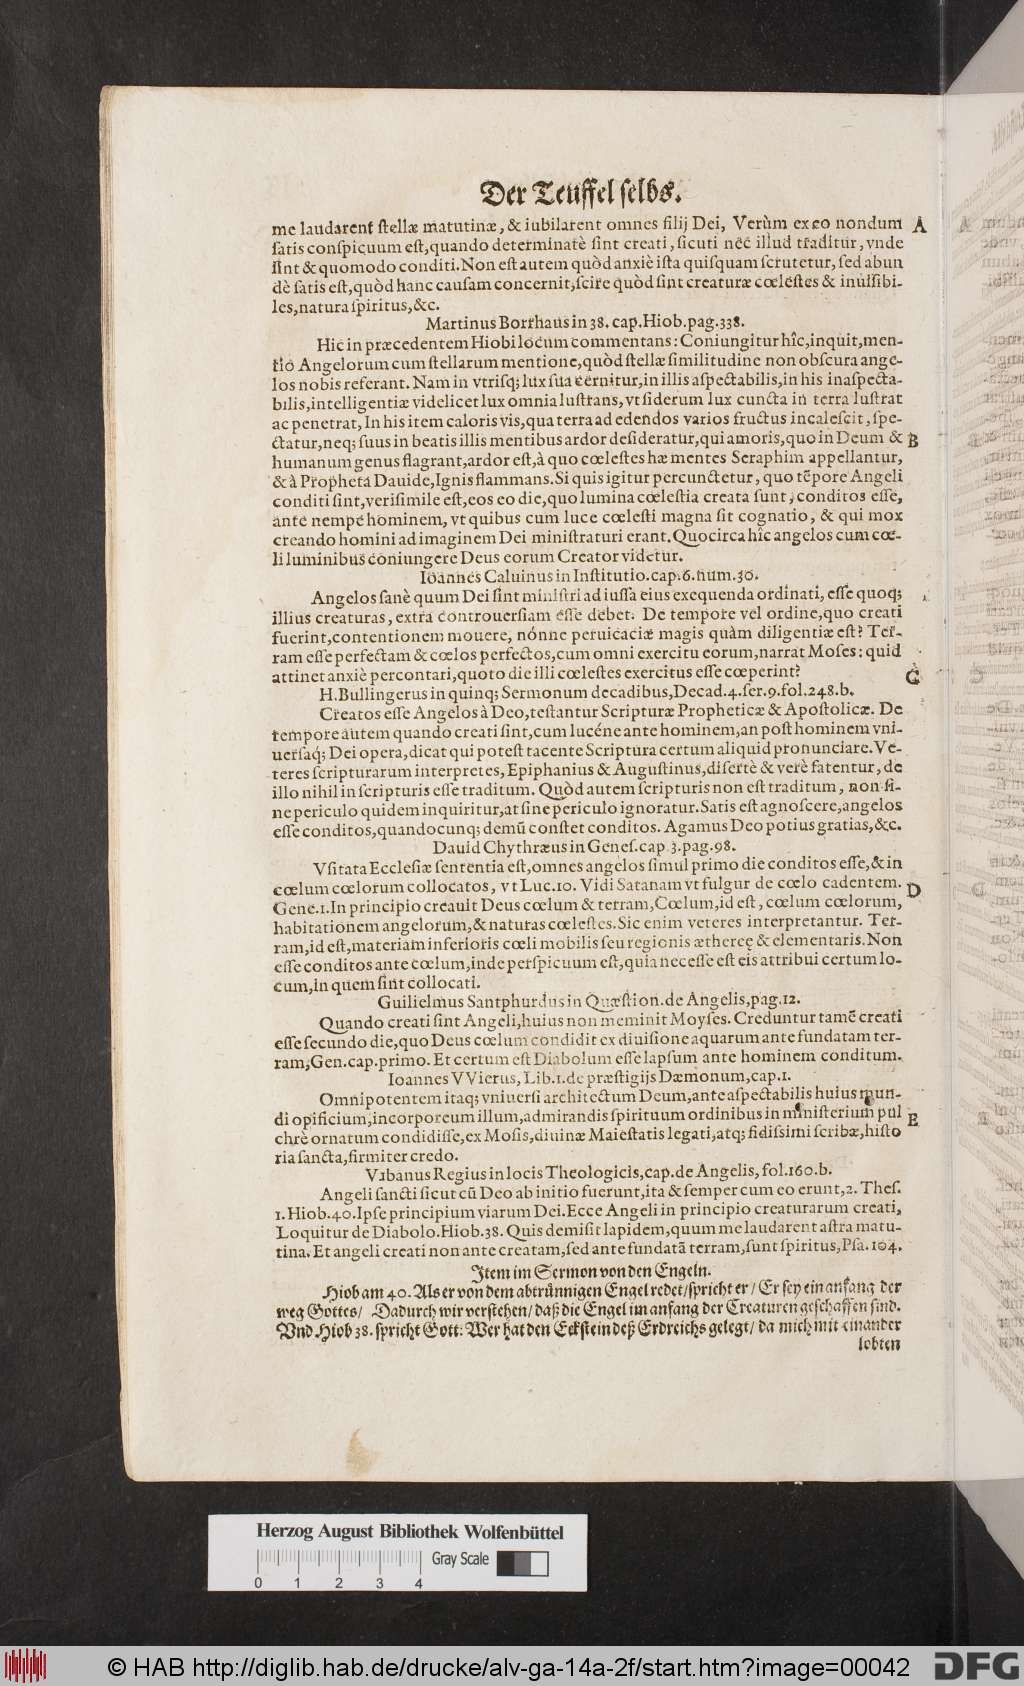 Der Teuffel selbs.
me laudarent stellæ matutinæ, & iubilarent omnes filij Dei, Verùm ex eo nondum A
satis conspicuum est, quando determinatè sint creati, sicuti nec illud traditur, vnde
sint & quomodo conditi. Non est autem quòd anxiè ista quisquam scrutetur, sed abun
dè satis est, quòd hanc causam concernit, scire quòd sint creaturæ cœlestes & inuisibi-
les, natura spiritus, &c.
Martinus Borrhaus in 38. cap. Hiob. pag. 338.
Hic in præcedentem Hiobi locum commentans: Coniungitur hîc, inquit, men-
tio Angelorum cum stellarum mentione, quòd stellæ similitudine non obscura ange-
los nobis referant. Nam in vtrisq; lux sua cernitur, in illis aspectabilis, in his inaspecta-
bilis, intelligentiæ videlicet lux omnia lustrans, vt siderum lux cuncta in terra lustrat
ac penetrat, In his item caloris vis, qua terra ad edendos varios fructus incalescit, spe-
ctatur, neq; suus in beatis illis mentibus ardor desideratur, qui amoris, quo in Deum & B
humanum genus flagrant, ardor est, à quo cœlestes hæ mentes Seraphim appellantur,
& à Propheta Dauide, Ignis flammans. Si quis igitur percunctetur, quo tẽpore Angeli
conditi sint, verisimile est, eos eo die, quo lumina cœlestia creata sunt, conditos esse,
ante nempe hominem, vt quibus cum luce cœlesti magna sit cognatio, & qui mox
creando homini ad imaginem Dei ministraturi erant. Quocirca hîc angelos cum cœ-
li luminibus coniungere Deus eorum Creator videtur.
Ioannes Caluinus in Institutio. cap. 6. num. 30.
Angelos sanè quum Dei sint ministri ad iussa eius exequenda ordinati, esse quoq;
illius creaturas, extra controuersiam esse debet. De tempore vel ordine, quo creati
fuerint, contentionem mouere, nónne peruicaciæ magis quàm diligentiæ est? Ter-
ram esse perfectam & cœlos perfectos, cum omni exercitu eorum, narrat Moses: quid
attinet anxiè percontari, quoto die illi cœlestes exercitus esse cœperint? C
H. Bullingerus in quinq; Sermonum decadibus, Decad. 4. ser. 9. fol. 248. b.
Creatos esse Angelos à Deo, testantur Scripturæ Propheticæ & Apostolicæ. De
tempore autem quando creati sint, cum lucéne ante hominem, an post hominem vni-
uersaq; Dei opera, dicat qui potest tacente Scriptura certum aliquid pronunciare. Ve-
teres scripturarum interpretes, Epiphanius & Augustinus, disertè & verè fatentur, de
illo nihil in scripturis esse traditum. Quòd autem scripturis non est traditum, non si-
ne periculo quidem inquiritur, at sine periculo ignoratur. Satis est agnoscere, angelos
esse conditos, quandocunq; demũ constet conditos. Agamus Deo potius gratias, &c.
Dauid Chythræus in Genes. cap. 3. pag. 98.
Vsitata Ecclesiæ sententia est, omnes angelos simul primo die conditos esse, & in
cœlum cœlorum collocatos, vt Luc. 10. Vidi Satanam vt fulgur de cœlo cadentem. D
Gene. 1. In principio creauit Deus cœlum & terram, Cœlum, id est, cœlum cœlorum,
habitationem angelorum, & naturas cœlestes. Sic enim veteres interpretantur. Ter-
ram, id est, materiam inferioris cœli mobilis seu regionis æthereę & elementaris. Non
esse conditos ante cœlum, inde perspicuum est, quia necesse est eis attribui certum lo-
cum, in quem sint collocati.
Guilielmus Santphurdus in Quæstion. de Angelis, pag. 12.
Quando creati sint Angeli, huius non meminit Moyses. Creduntur tamẽ creati
esse secundo die, quo Deus cœlum condidit ex diuisione aquarum ante fundatam ter-
ram, Gen. cap. primo. Et certum est Diabolum esse lapsum ante hominem conditum.
Ioannes VVierus, Lib. 1. de præstigijs Dæmonum, cap. 1.
Omnipotentem itaq; vniuersi architectum Deum, ante aspectabilis huius mun-
di opificium, incorporeum illum, admirandis spirituum ordinibus in ministerium pul E
chrè ornatum condidisse, ex Mosis, diuinæ Maiestatis legati, atq; fidissimi scribæ, histo
ria sancta, firmiter credo.
Vrbanus Regius in locis Theologicis, cap. de Angelis, fol. 160. b.
Angeli sancti sicut cũ Deo ab initio fuerunt, ita & semper cum eo erunt, 2. Thes.
1. Hiob. 40. Ipse principium viarum Dei. Ecce Angeli in principio creaturarum creati,
Loquitur de Diabolo. Hiob. 38. Quis demisit lapidem, quum me laudarent astra matu-
tina. Et angeli creati non ante creatam, sed ante fundatã terram, sunt spiritus, Psa. 104.
Item im Sermon von den Engeln.
Hiob am 40. Als er von dem abtrünnigen Engel redet/ spricht er/ Er sey ein anfang der
weg Gottes/ Dadurch wir verstehen/ daß die Engel im anfang der Creaturen geschaffen sind.
Vnd Hiob 38. spricht Gott: Wer hat den Eckstein deß Erdreichs gelegt/ da mich mit einander
lobten
Herzog August Bibliothek Wolfenbüttel
Gray Scale
0 1 2 3 4
© HAB http://diglib.hab.de/drucke/alv-ga-14a-2f/start.htm?image=00042 DFG